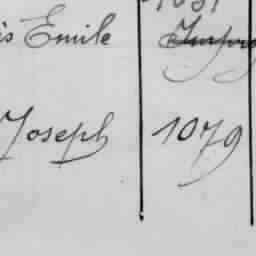 is Emile
Joseph 1079